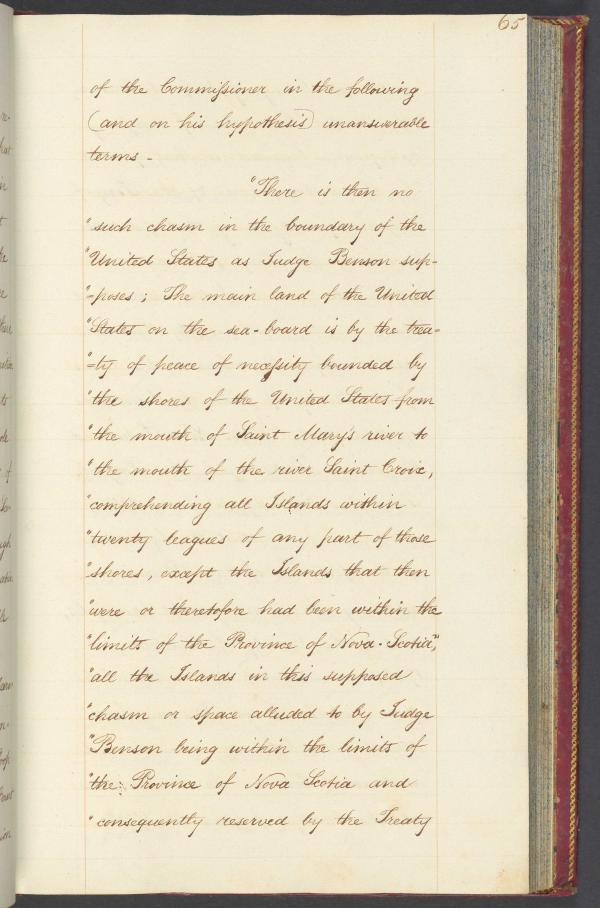 65
of the Commissioner in the following
(and on his hypothesis) unanswerable
terms -
"There is then no
"such chasm in the boundary of the
"United States as Judge Benson sup-
"-poses; The main land of the United
"States on the sea-board is by the trea-
"=ty of peace of necessity bounded by
"the shores of the United States from
"the mouth of Saint Mary's river to
"the mouth of the river Saint Croix,
"comprehending all Islands within
"twenty leagues of any part of those
"shores, except the Islands that then
"were or theretofore had been within the
"limits of the Province of Nova-Scotia",
"all the Islands in this supposed
"chasm or space alluded to by Judge
"Benson being within the limits of
"the Province of Nova Scotia and
"consequently reserved by the Treaty